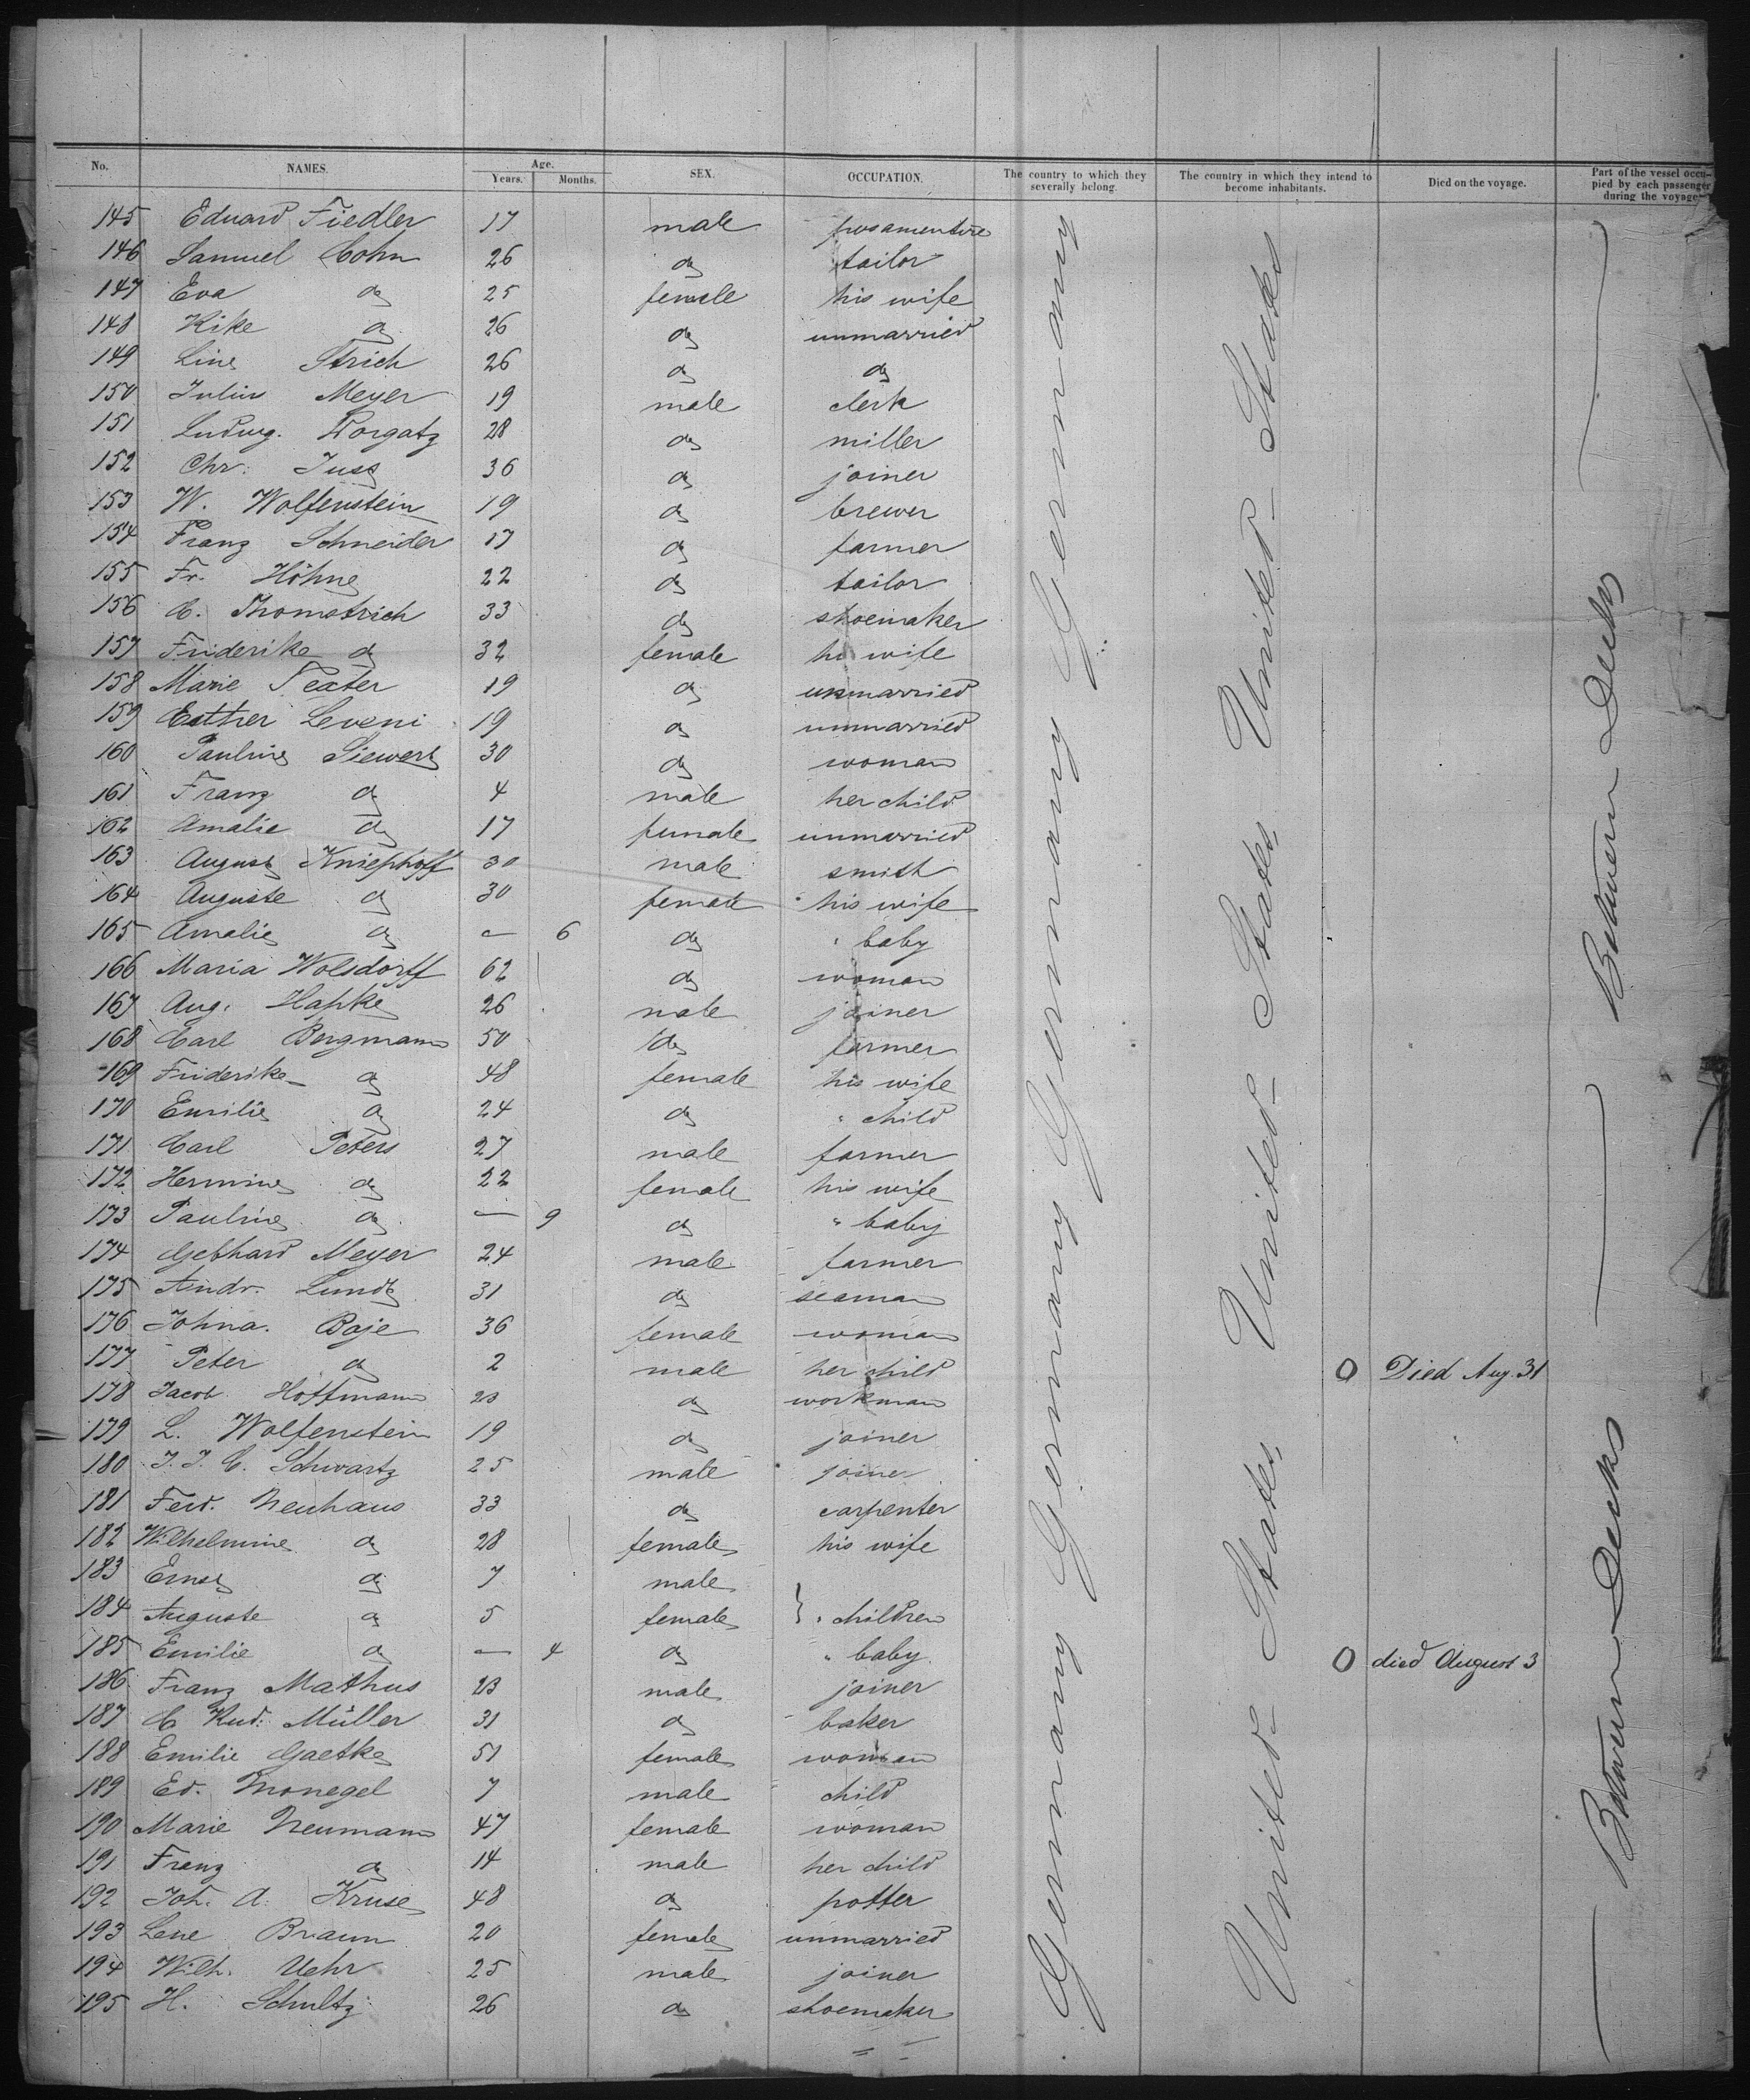 No. NAMES. Age. Years. Months. SEX. OCCUPATION. The country to which they severally belong. The country in which they intend to become inhabitants. Died on the voyage. Part of the vessel occupied by each passenger during the voyage
145 Eduard Fiedler 17 male
146 Samuel Cohn 26 do tailor
147 Eva do 25 female his wife
148 Rike do 26 do unmarried
149 Line Strich 26 do do
150 Julius Meyer 19 male clerk
151 Ludwig. 28 do miller
152 Chr. 36 do joiner
153 W. Wolfenstein 19 do brewer
154 Franz Schneider 17 do farmer
155 Fr. Höhne 22 do tailor
156 C. 33 do shoemaker
157 Friderike do 32 female his wife
158 Marie Texter 19 do unmarried
159 Esther Leveni 19 do unmarried
160 Pauline Siewert 30 do woman
161 Franz do 4 male her child
162 Amalie do 17 female unmarried
163 August Kniephoff 30 male smith
164 Auguste do 30 female his wife
165 Amalie do — 6 do " baby
166 Maria Wolsdorff 62 do woman
167 Aug. Hapke 26 male joiner
168 Carl Bergmann 50 do farmer
169 Friderike do 48 female his wife
170 Emilie do 24 do " child
171 Carl Peters 27 male farmer
172 Hermine do 22 female his wife
173 Pauline do — 9 do " baby
174 Gebhard Meyer 24 male farmer
175 Andr. Lundt 31 do seaman
176 Johna. Boje 36 female woman
177 Peter do 2 male her child O Died Aug. 31
178 Jacob Hoffmann 23 do workman
179 L. Wolfenstein 19 do joiner
180 J. J. C. Schwartz 25 male joiner
181 Ferd. Neuhaus 33 do carpenter
182 Wilhelmine do 28 female his wife
183 Ernst do 7 male
184 Auguste do 5 female } " children
185 Emilie do — 4 do " baby O died August 3
186 Franz Mathus 23 male joiner
187 C Rud: Müller 31 do baker
188 Emilie Gaetke 51 female woman
189 Ed. Monegel 7 male child
190 Marie Neumann 47 female woman
191 Franz do 14 male her child
192 Joh. A. Kruse 48 do potter
193 Lene Braun 20 female unmarried
194 Wilh. Uehr 25 male joiner
195 H. Schultz 26 do shoemaker
Germany Germany Germany Germany Germany
United States United States United States United States
Between Decks Between Decks